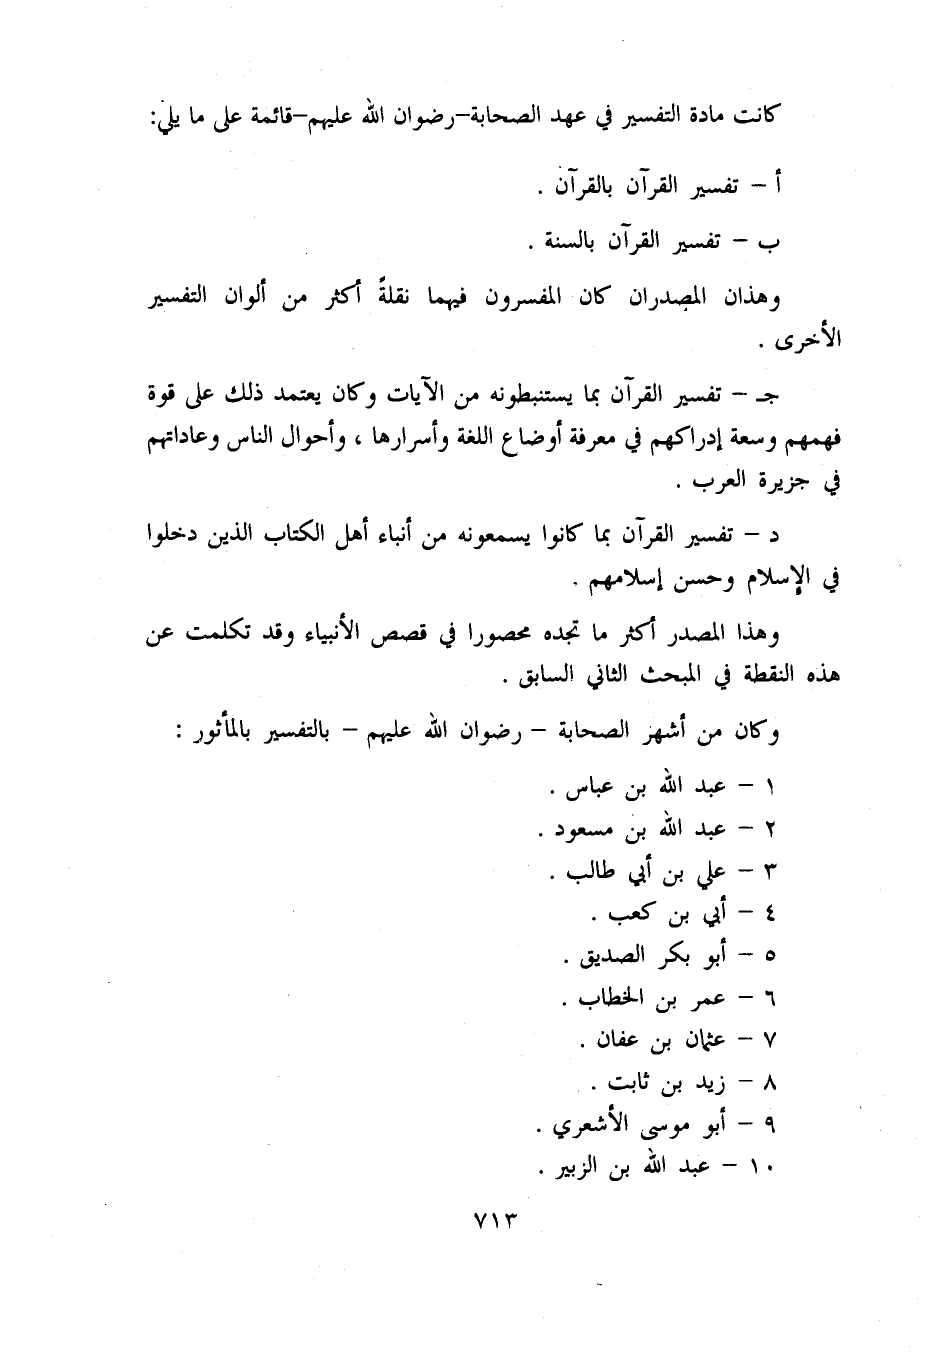 كانت مادة التفسير في عهد الصحابة–رضوان الله عليهم–قائمة على ما يلي:
أ – تفسير القرآن بالقرآن .
ب – تفسير القرآن بالسنة .
وهذان المصدران كان المفسرون فيهما نقلةً أكثر من ألوان التفسير
الأخرى .
جـ – تفسير القرآن بما يستنبطونه من الآيات وكان يعتمد ذلك على قوة
فهمهم وسعة إدراكهم في معرفة أوضاع اللغة وأسرارها ، وأحوال الناس وعاداتهم
في جزيرة العرب .
د – تفسير القرآن بما كانوا يسمعونه من أنباء أهل الكتاب الذين دخلوا
في الإسلام وحسن إسلامهم .
وهذا المصدر أكثر ما تجده محصورا في قصص الأنبياء وقد تكلمت عن
هذه النقطة في المبحث الثاني السابق .
وكان من أشهر الصحابة – رضوان الله عليهم – بالتفسير بالمأثور :
١ – عبد الله بن عباس .
٢ – عبد الله بن مسعود .
٣ – علي بن أبي طالب .
٤ – أبي بن كعب .
٥ – أبو بكر الصديق .
٦ – عمر بن الخطاب .
٧ – عثمان بن عفان .
٨ – زيد بن ثابت .
٩ – أبو موسى الأشعري .
١٠ – عبد الله بن الزبير .
٧١٣